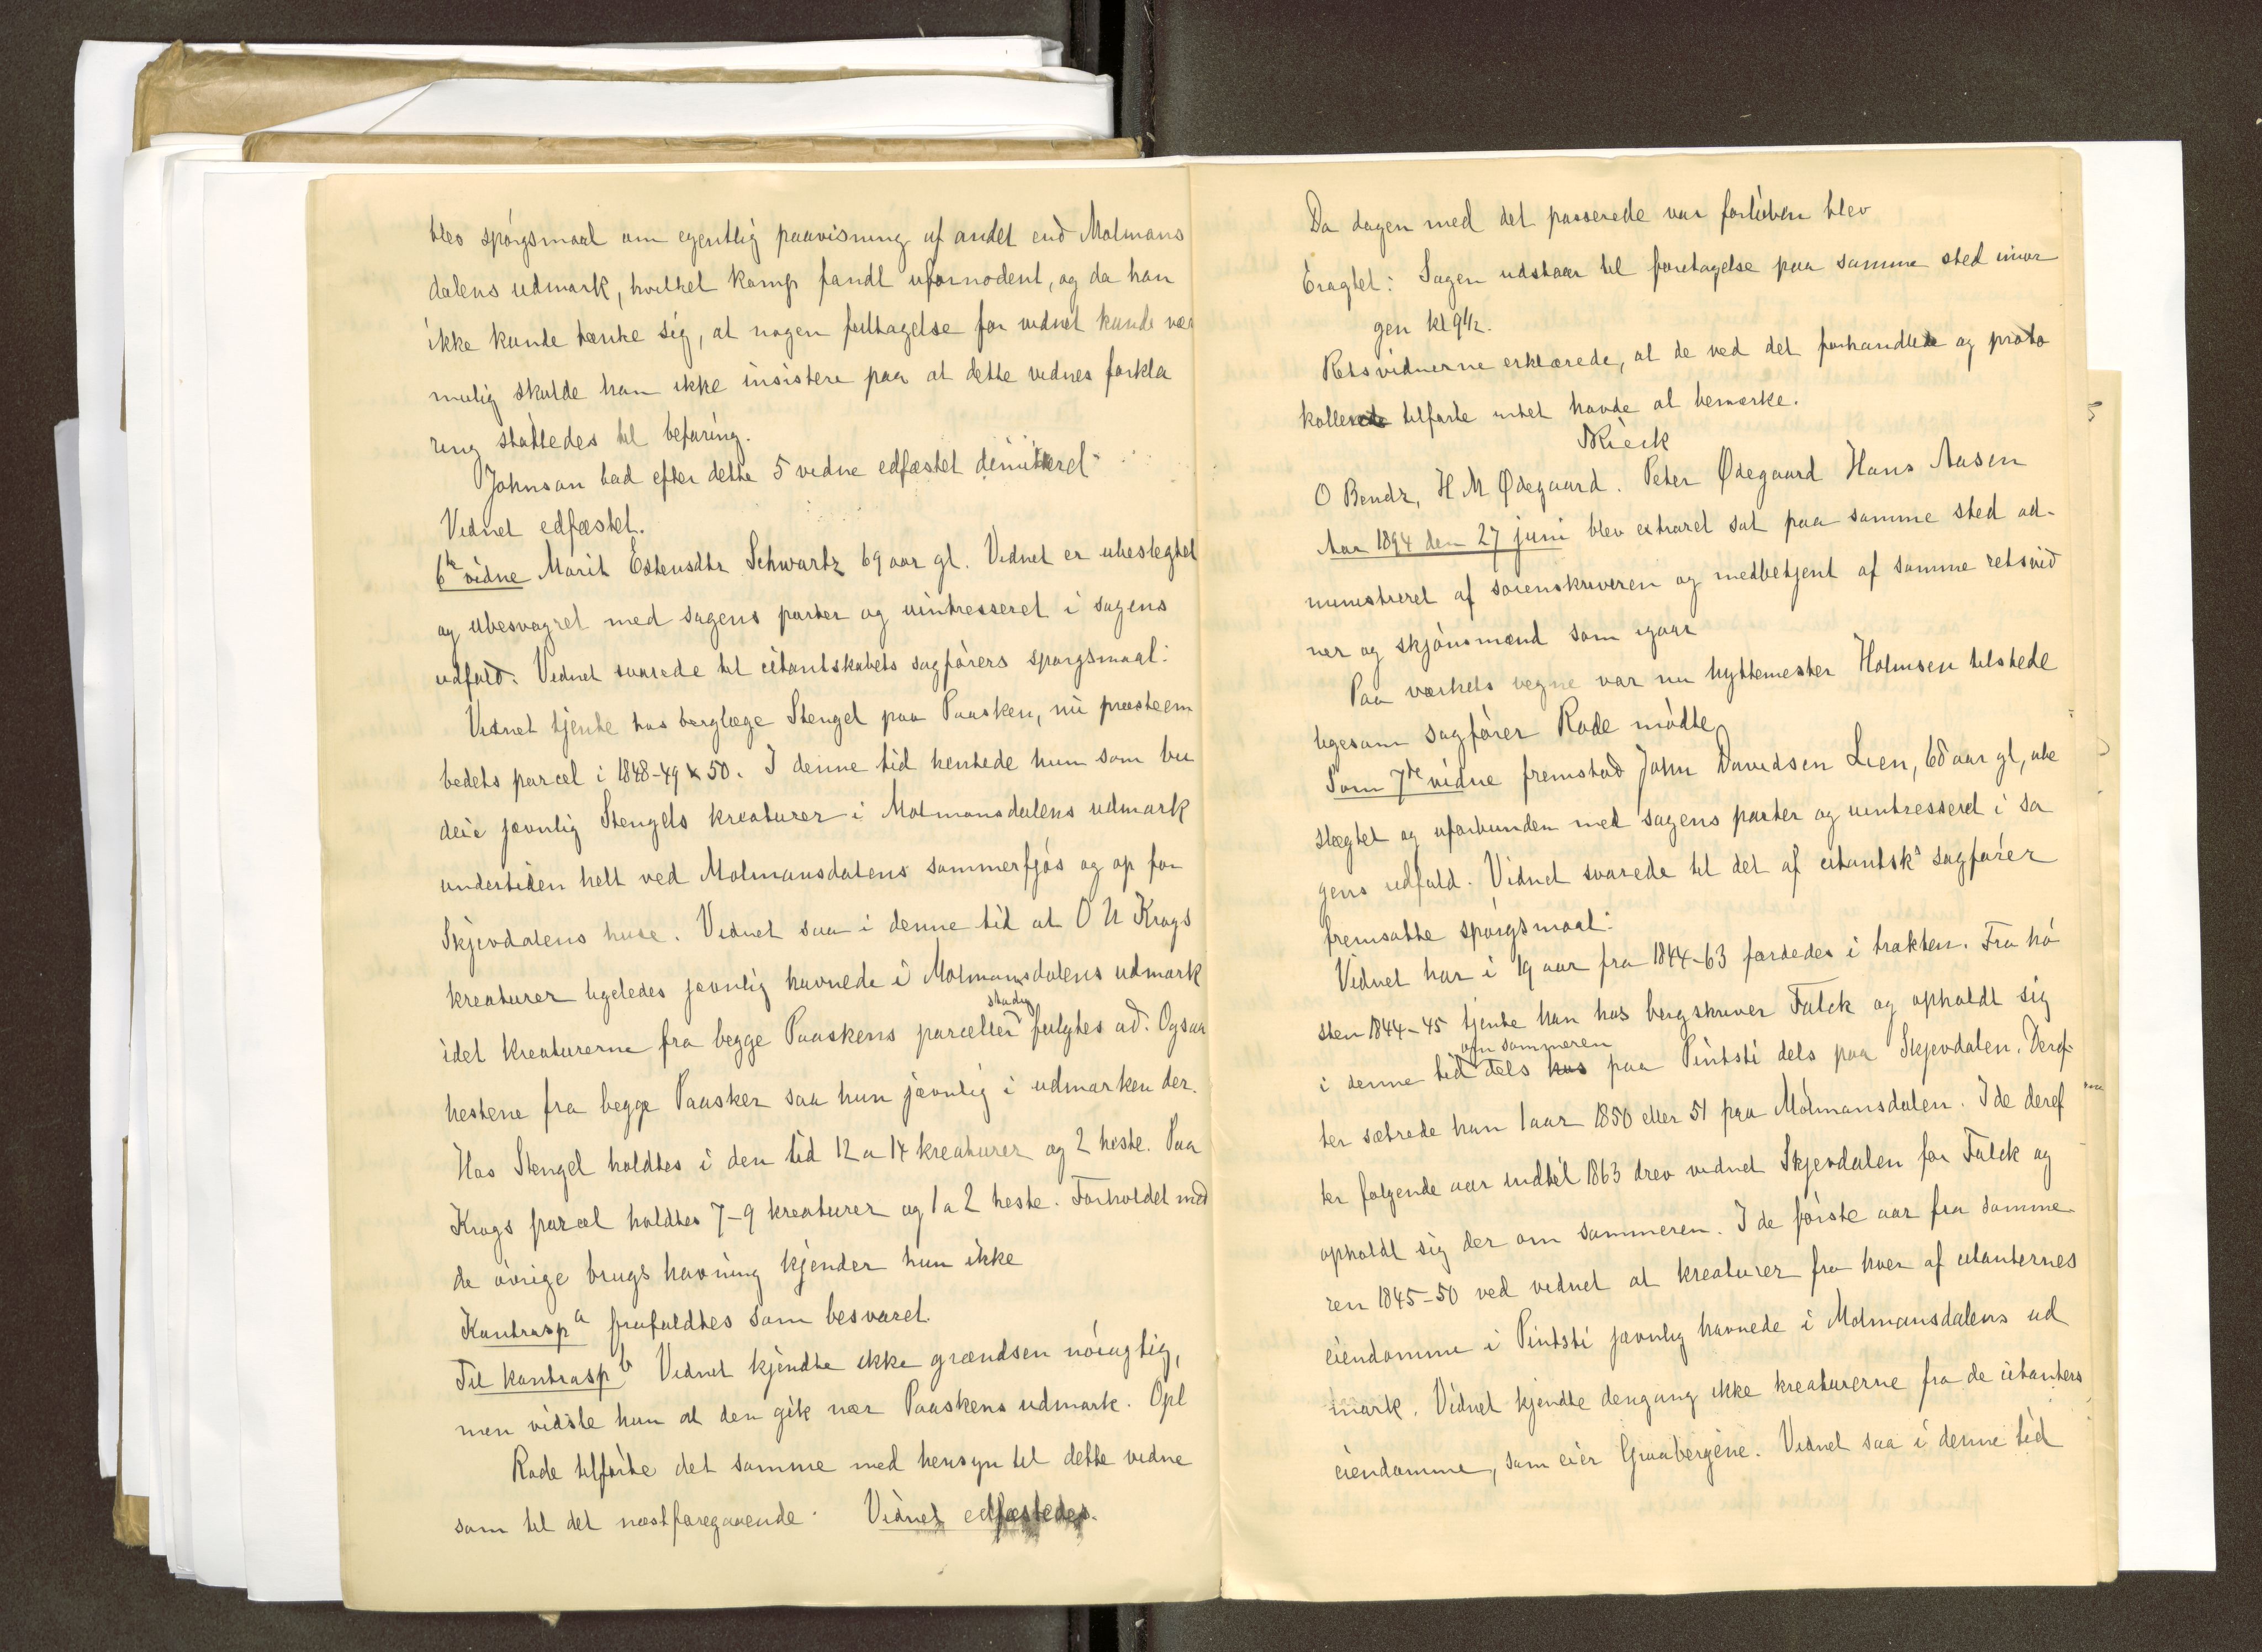 blev spörgsmaal om egentlig paavisning af andet end Molmans
dalens udmark, hvilket Kamp fandt ufornödent, og da han
ikke kunde tænke sig, at nogen feiltagelse for vidnet kunde vær
mulig skulde han ikke insistere paa at dette vidnes forkla
ring støttedes til befaring.
Johnson bad efter dette 5 vidne edfæstet dimitteret
Vidnet edfæstet.
6te vidne Marit Estensdtr Schwartz 69 aar gl. Vidnet er ubeslegtet
og ubesvogret med sagens parter og uintresseret i sagens
udfald. Vidnet svarede til citantskabets sagförers spørgsmaal:
Vidnet tjente hos berglæge Stengel paa Paasken, nu presteem
bedets parcel i 1848-49 & 50. I denne tid hentede hun som bu
deie jevnlig Stengels kreaturer i Molmansdalens udmark
undertiden helt ved Molmansdalens sommerfjøs og op for
Skjevdalens huse. Vidnet saa i denne tid at O N Krogs
kreaturer ligeledes jevnlig havnede i Molmansdalens udmark
idet kreaturerne fra begge Paaskens parceller stadig fulgtes ad. Ogsaa
hestene fra begge Paasker saa hun jævnlig i udmarken der.
Hos Stengel holdtes i den tid 12 a 14 kreaturer og 2 heste. Paa
Krogs parcel holdtes 7-9 kreaturer og 1 a 2 heste. Forholdet med
de övrige brugs havning kjender hun ikke
Kontrasp a frafaldtes som besvaret.
Til kontrasp b Vidnet kjendte ikke grændsen nöiagtig,
men vidste hun at den gik nær Paaskens udmark. Opl
Rode tilførte det samme med hensyn til dette vidne
som til det næstforegaaende. Vidnet edfæstedes.
Da dagen med det passerede var forløben blev
Eragtet: Sagen udstaar til foretagelse paa samme sted imor
gen kl 9½.
Retsvidnerne erklærede, at de ved det forhandlede og proto
kollerede tilførte intet havde at bemærke.
O Bendz, H M Ødegaard. Peter Ødegaard Hans Aasen
Aar 1894 den 27 juni blev extraret sat paa samme sted ad-
ministreret af sorenskriveren og medbetjent af samme retsvid
ner og skjønsmænd som igaar
Paa værkets vegne var nu hyttemester Holmsen tilstede
ligesom sagförer Rode mödte
Som 7de vidne fremstod John Davidsen Lien, 68 aar gl, ube
slægtet og uforbunden med sagens parter og uintresseret i sa
gens udfald. Vidnet svarede til det af citantsks sagfører
fremsatte spörgsmaal:
Vidnet har i 19 aar fra 1844-63 færdedes i trakten. Fra hø
sten 1844-45 tjente han hos bergskriver Falck og opholdt sig
i denne tid om sommeren dels hos paa Pintsti dels paa Skjevdalen. Deref
ter sætrede han 1 aar 1850 eller 51 paa Molmansdalen. I de deref
ter følgende aar indtil 1863 drev vidnet Skjevdalen for Falck og
opholdt sig der om sommeren. I de første aar fra somme
ren 1845-50 ved vidnet at kreaturer fra hver af citanternes
eiendomme i Pintsti jævnlig havnede i Molmansdalens ud
mark. Vidnet kjendte dengang ikke kreaturerne fra de citanters
eiendomme, som eier Graabergene. Vidnet saa i denne tid